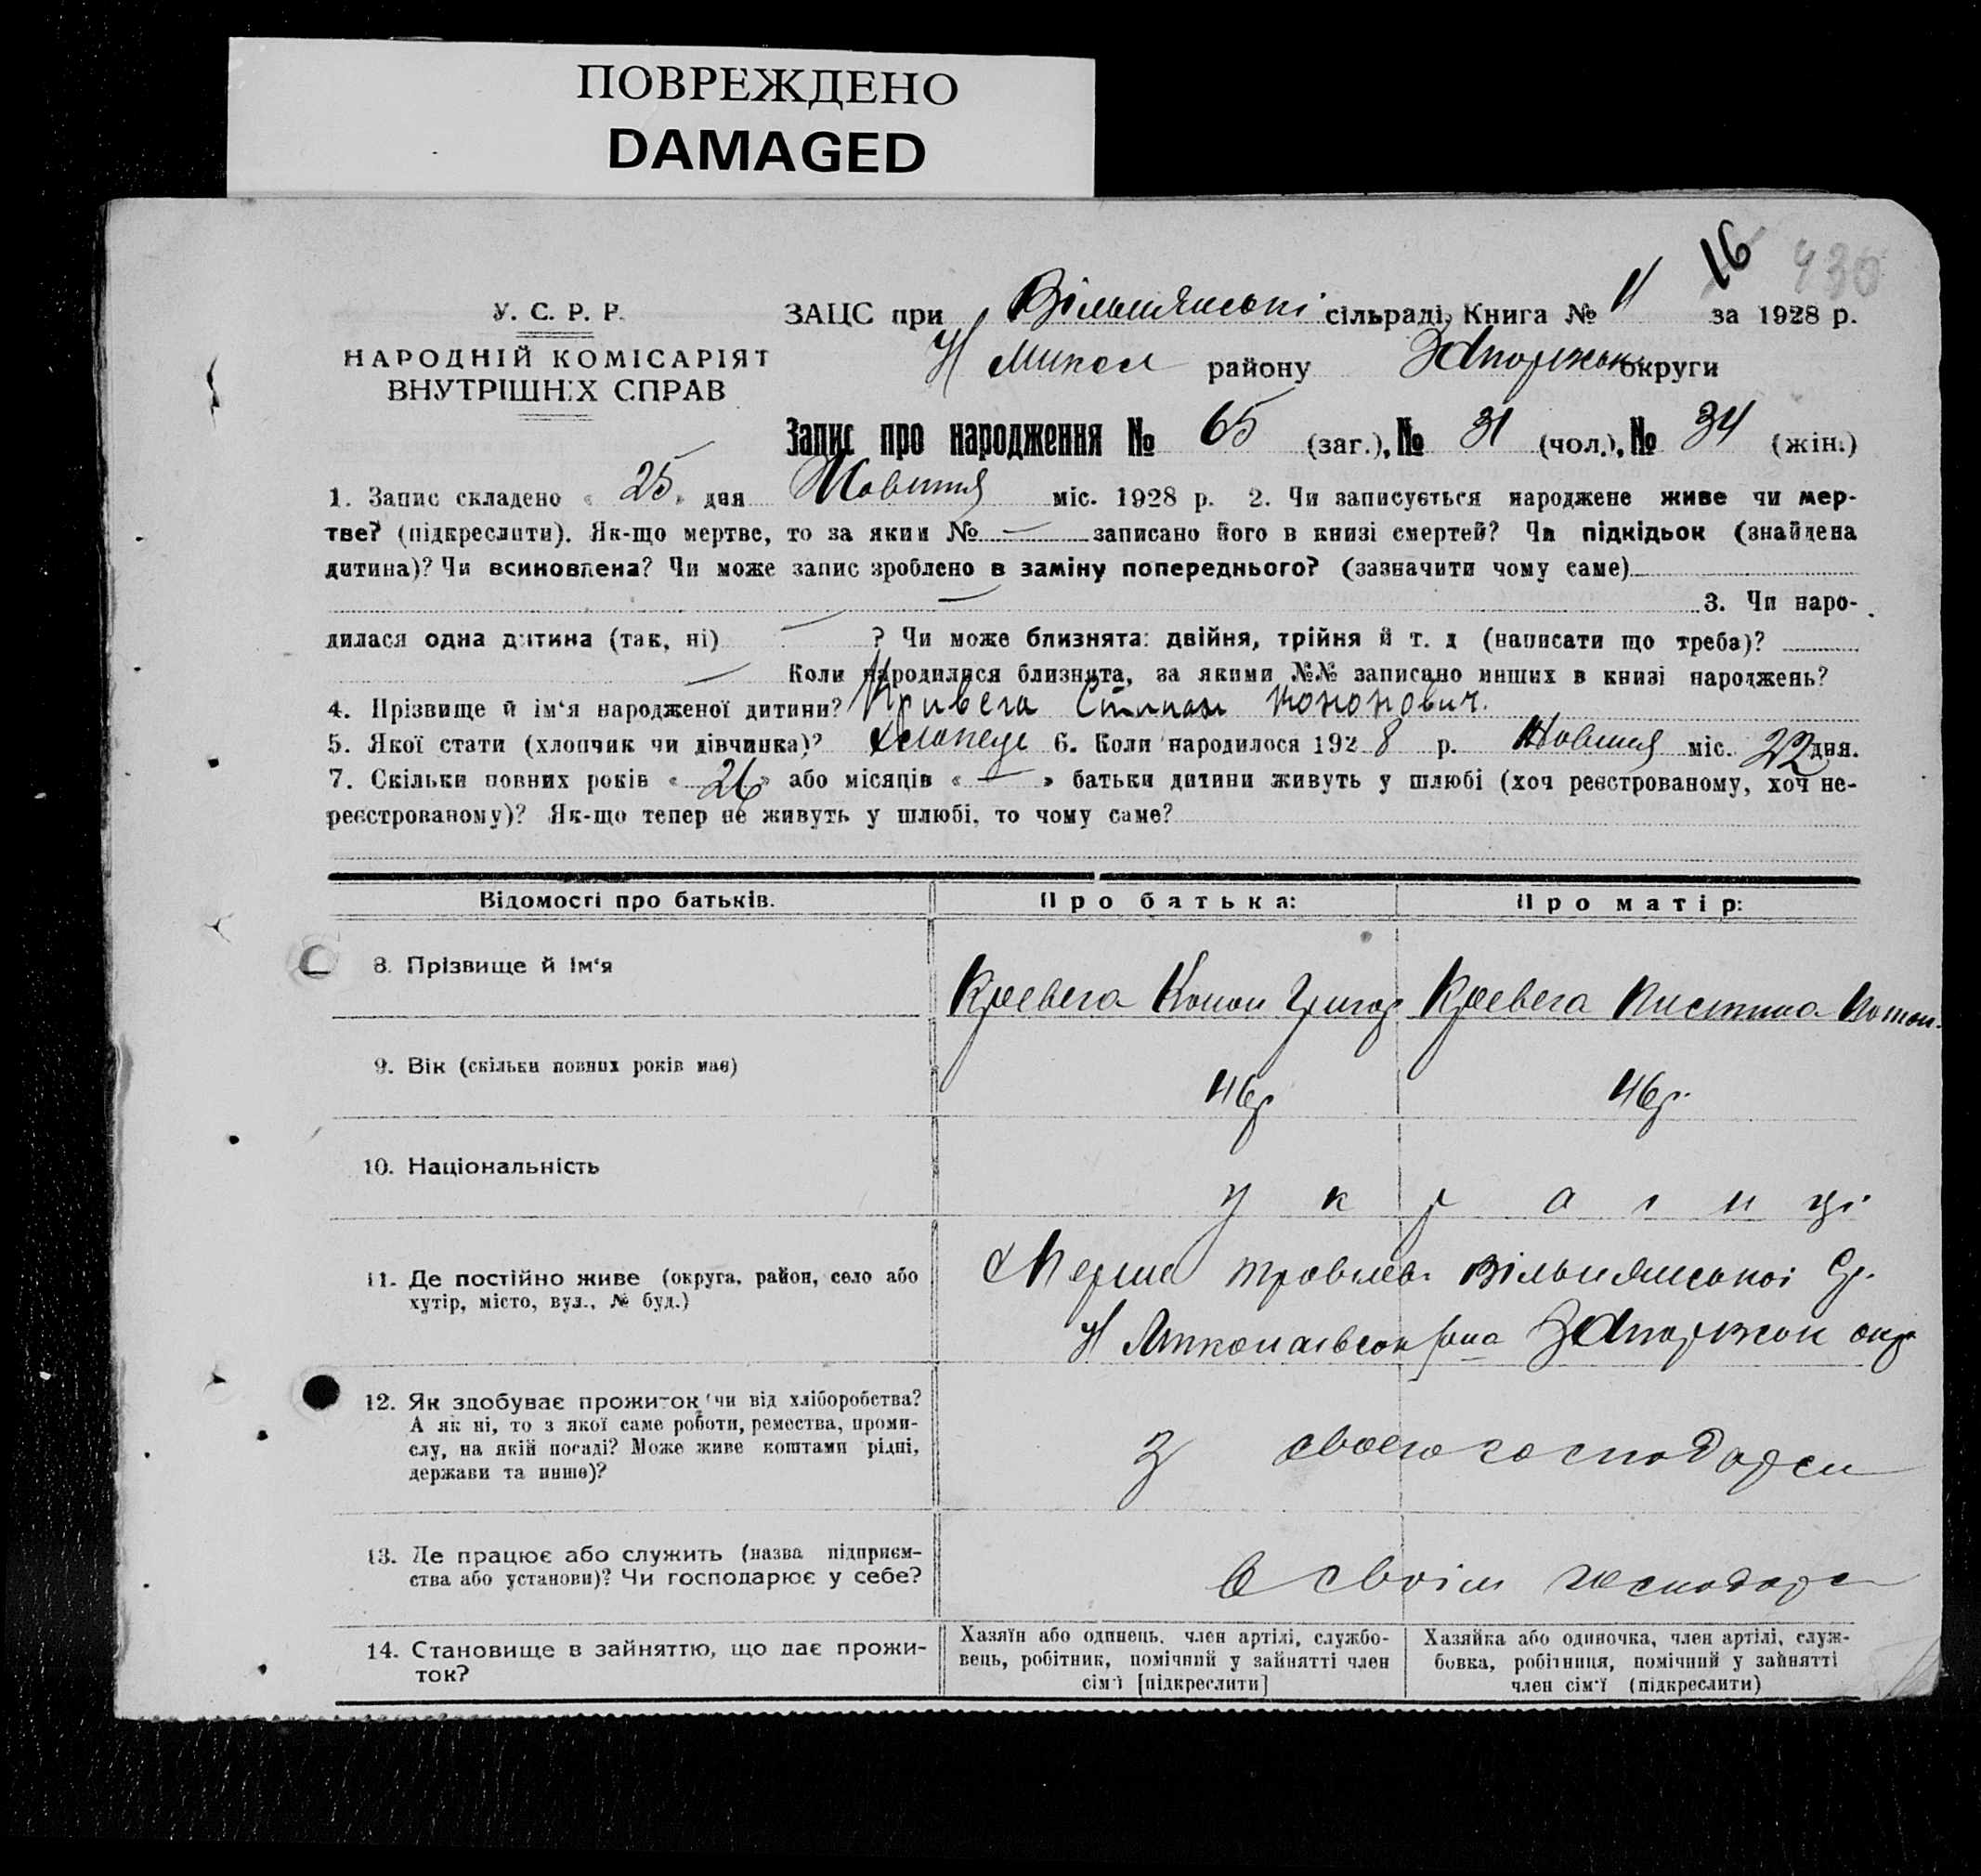 ПОВРЕЖДЕНО
DAMAGED
16 430
У. С. Р. Р.
НАРОДНІЙ КОМІСАРІЯТ
ВНУТРІШНІХ СПРАВ
ЗАЦС при Вільнянські сільраді, Книга № за 1928 р.
Н Микол району Запоржськ округи
Запис про народження № 65 (заг.), № 31 (чол.), № 34 (жін.)
1. Запис складено « 25 » дня Жовтня міс. 1928 р. 2. Чи записується народжене живе чи мер-
тве? (підкреслити). Як-що мертве, то за яким № — записано його в книзі смертей? Чи підкідьок (знайдена
дитина)? Чи всиновлена? Чи може запис зроблено в заміну попереднього? (зазначити чому саме)
— 3. Чи наро-
дилася одна дитина (так, ні) — ? Чи може близнята: двійня, трійня й т. д (написати що треба)?
— Коли народилися близнята, за якими №№ записано инших в книзі народжень?
4. Прізвище й ім'я народженої дитини? Кривега Степан Кононович.
5. Якої стати (хлопчик чи дівчинка)? Хлопець 6. Коли народилося 1928 р. Жовтня міс. 22 дня.
7. Скільки повних років « 26 » або місяців « — » батьки дитини живуть у шлюбі (хоч реєстрованому, хоч не-
реєстрованому)? Як-що тепер не живуть у шлюбі, то чому саме?
Відомості про батьків. Про батька: Про матір:
8. Прізвище й ім'я Кревега Конон Григор Кревега Христина
9. Вік (скільки повних років має) 46р 46р.
10. Національність україці
11. Де постійно живе (округа, район, село або
хутір, місто, вул., № буд.)
Вільнянської Ср.
Н Миколаївськ рона Запоржськ окр
12. Як здобуває прожиток (чи від хліборобства?
А як ні, то з якої саме роботи, ремества, проми-
слу, на якій посаді? Може живе коштами рідні,
держави та инше)?
З своего господарси
13. Де працює або служить (назва підприєм-
ства або установи)? Чи господарює у себе?
В своїм господарс
14. Становище в зайняттю, що дає прожи-
ток?
Хазяїн або одинець, член артілі, службо-
вець, робітник, помічний у зайнятті член
сім'ї [підкреслити]
Хазяйка або одиночка, член артілі, служ-
бовка, робітниця, помічний у зайнятті
член сім'ї (підкреслити)